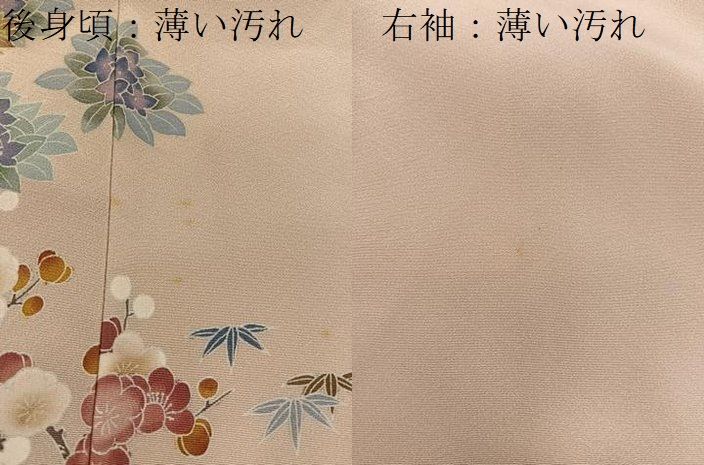 後身頃：薄い汚れ
右袖：薄い汚れ